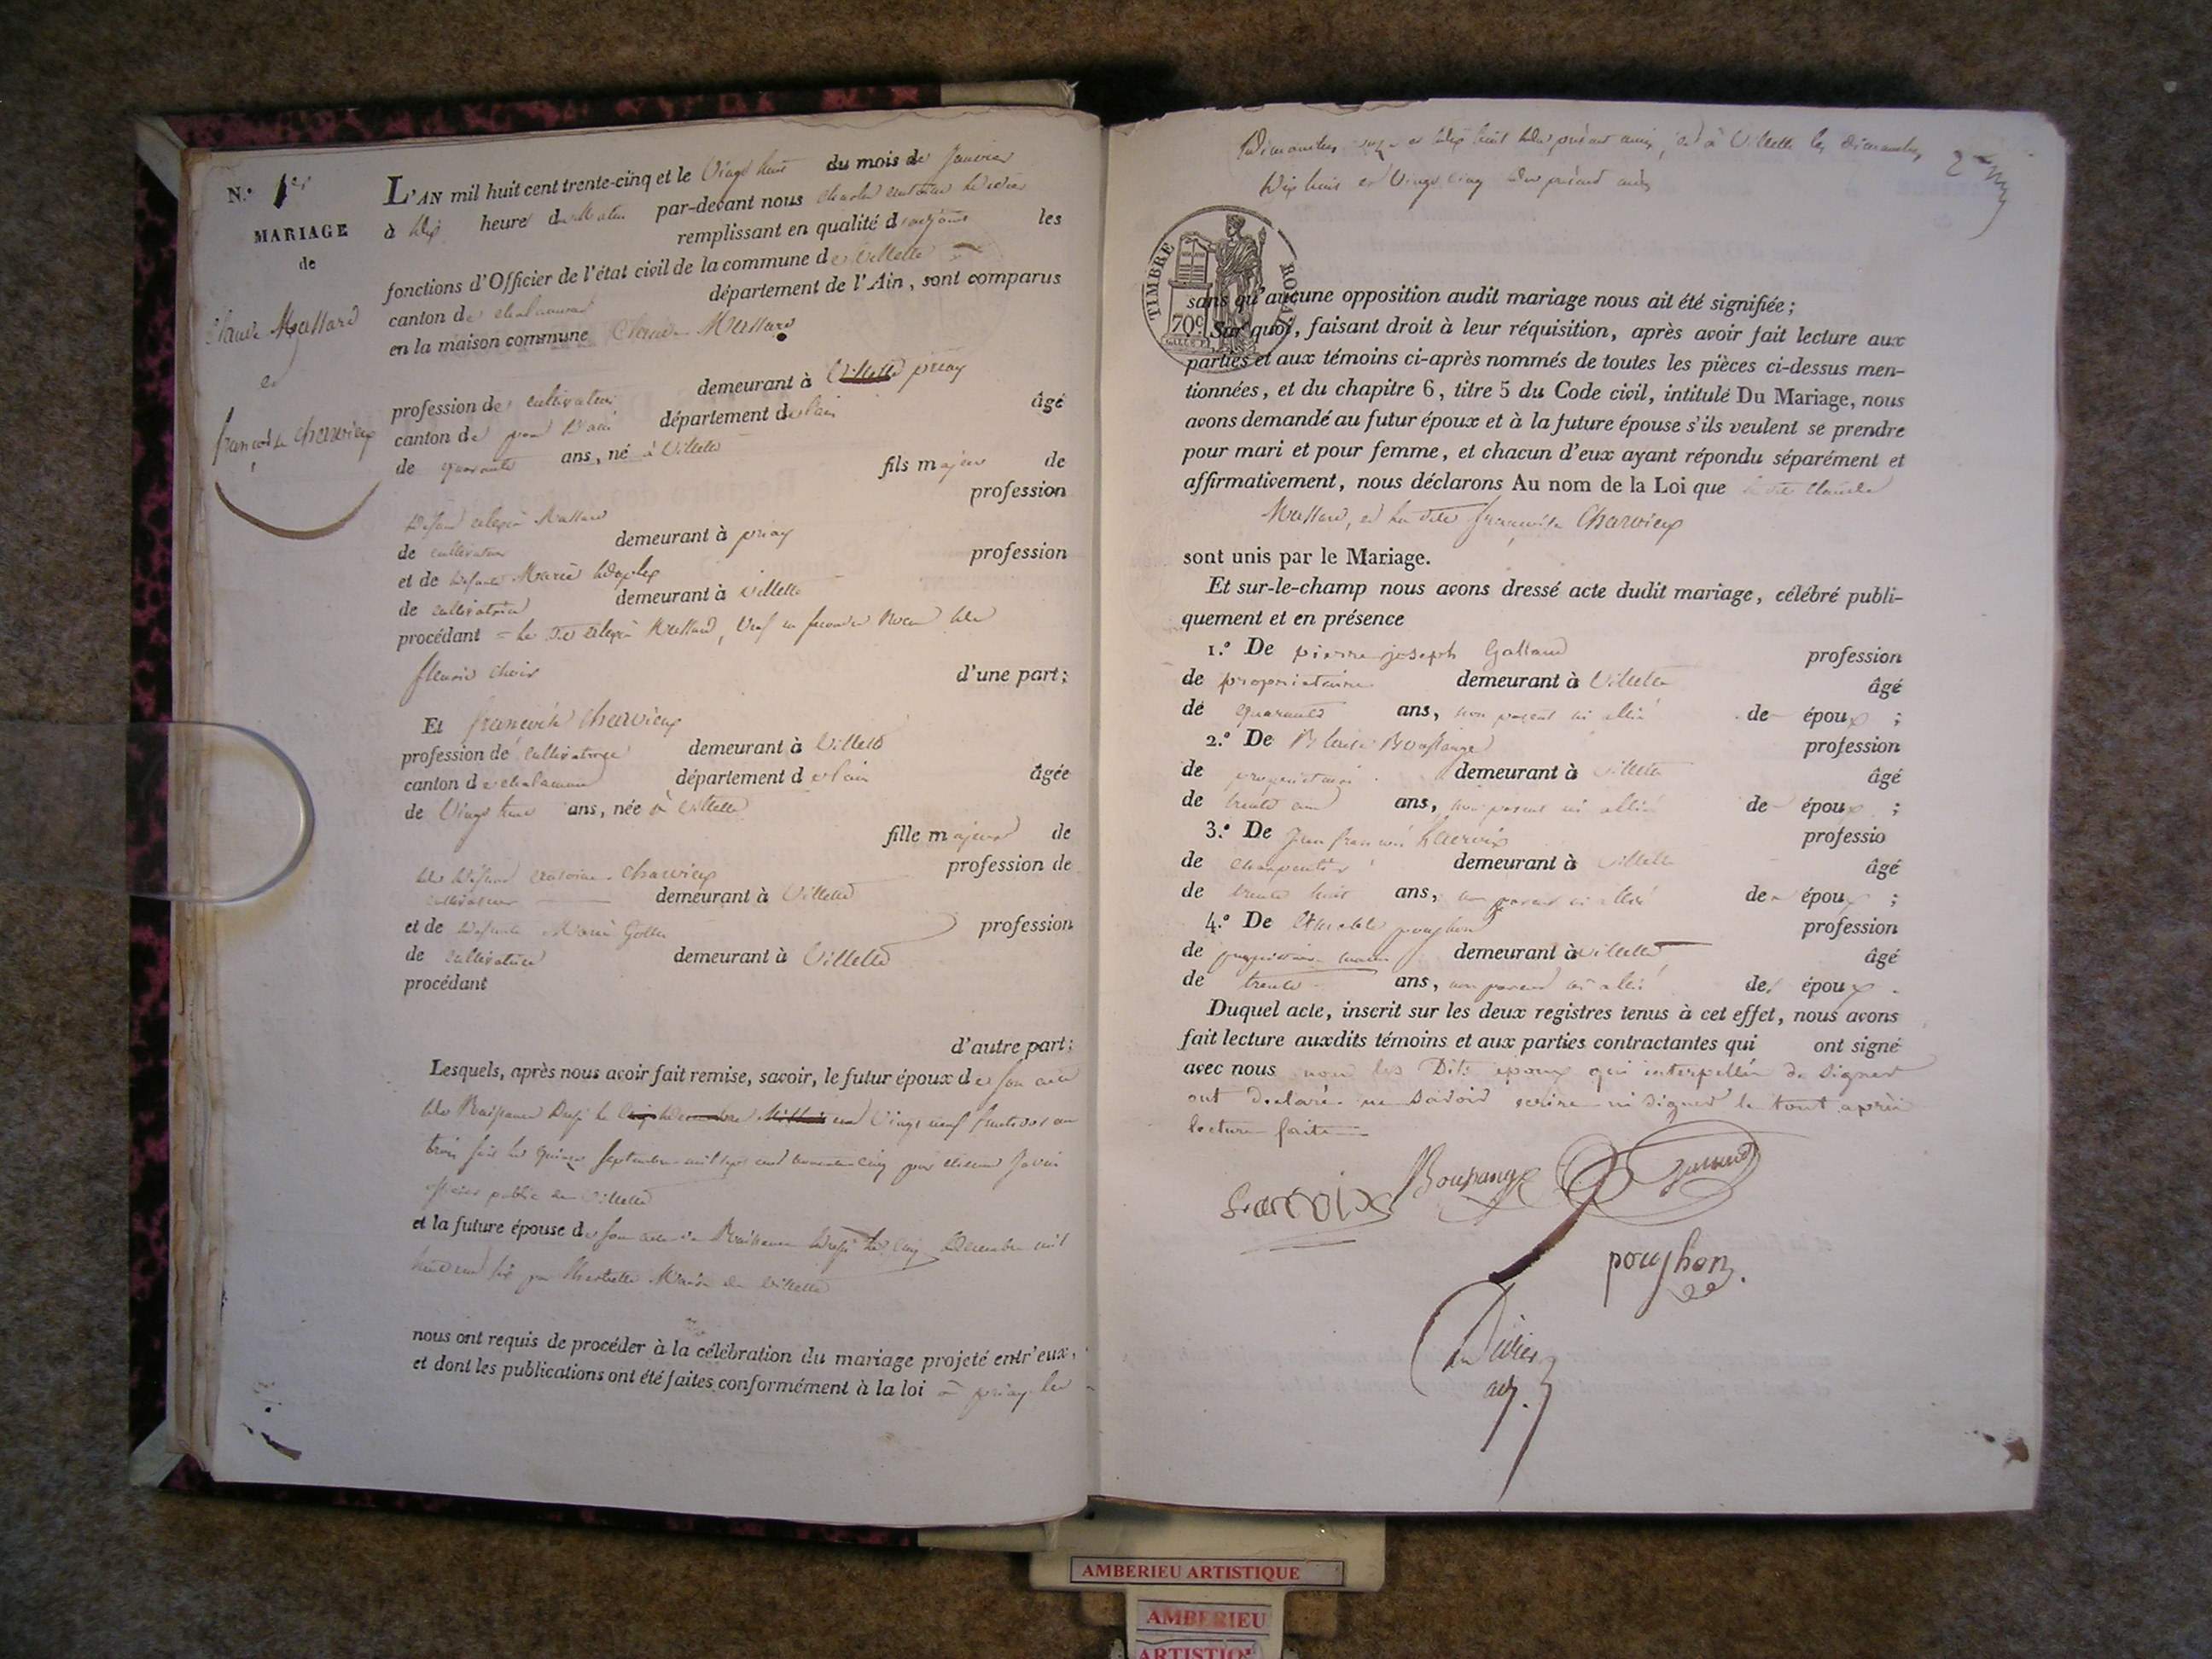 N.º 1er
MARIAGE
de
Claude Massard
et
françoise Charvieux
L'AN mil huit cent trente-cinq et le Vingt huit du mois de Janvier
à dix heure du Matin par-devant nous Charles antoine Didier
remplissant en qualité d'adjoint les
fonctions d'Officier de l'état civil de la commune de Villette
canton de chalamont département de l'Ain, sont comparus
en la maison commune Claude Massard
profession de cultivateur demeurant à Villette priay
canton de pont d'ain département de l'ain âgé
de quarante ans, né à Villette
fils majeur de
profession
Defunt alexis Massard
de cultivateur demeurant à priay
et de defunte Marie profession
de cultivatrice demeurant à Villette
procédant = le dit alexis Massard, Veuf en secondes Noces de
fleurie
d'une part;
Et françoise Charvieux
profession de cultivatrice demeurant à Villette
canton de chalamont département de l'ain âgée
de Vingt huit ans, née à Villette
fille majeure de
profession de
de Défunt antoine Charvieux
cultivateur demeurant à Villette
et de defunte Marie profession
de cultivatrice demeurant à Villette
procédant
d'autre part;
Lesquels, après nous avoir fait remise, savoir, le futur époux de son acte
de Naissance Dressé le Vingt neuf fructidor an
trois soit le quinze septembre mil sept cent par
officier public de Villette
et la future épouse de son acte de Naissance Dressé le cinq Décembre mil
huit cent six par Maire de Villette
nous ont requis de procéder à la célébration du mariage projeté entr'eux,
et dont les publications ont été faites conformément à la loi à priay les
Dimanches onze et dix huit du présent mois, et à Villette les dimanches
Dix huit et Vingt cinq du présent mois
TIMBRE ROYAL
70c
sans qu'aucune opposition audit mariage nous ait été signifiée;
Sur quoi, faisant droit à leur réquisition, après avoir fait lecture aux
parties et aux témoins ci-après nommés de toutes les pièces ci-dessus men-
tionnées, et du chapitre 6, titre 5 du Code civil, intitulé Du Mariage, nous
avons demandé au futur époux et à la future épouse s'ils veulent se prendre
pour mari et pour femme, et chacun d'eux ayant répondu séparément et
affirmativement, nous déclarons Au nom de la Loi que le dit Claude
Massard, et la dite françoise Charvieux
sont unis par le Mariage.
Et sur-le-champ nous avons dressé acte dudit mariage, célébré publi-
quement et en présence
1.º De pierre joseph Galland profession
de propriétaire demeurant à Villette âgé
de quarante ans, non parent ni allié des époux ;
2.º De profession
de propriétaire demeurant à Villette âgé
de trente ans, non parent ni allié des époux ;
3.º De Jean françois Lacroix professio
de charpentier demeurant à Villette âgé
de trente huit ans, non parent ni allié des époux ;
4.º De pouchon profession
de propriétaire demeurant à Villette âgé
de trente ans, non parent ni allié des époux.
Duquel acte, inscrit sur les deux registres tenus à cet effet, nous avons
fait lecture auxdits témoins et aux parties contractantes qui ont signé
avec nous non les Dits époux qui interpellés de signer
ont déclaré ne savoir ecrire ni signer le tout après
lecture faite
Lacroix
pouchon
Didier
adj.
AMBERIEU ARTISTIQUE
AMBERIEU
ARTISTIQUE